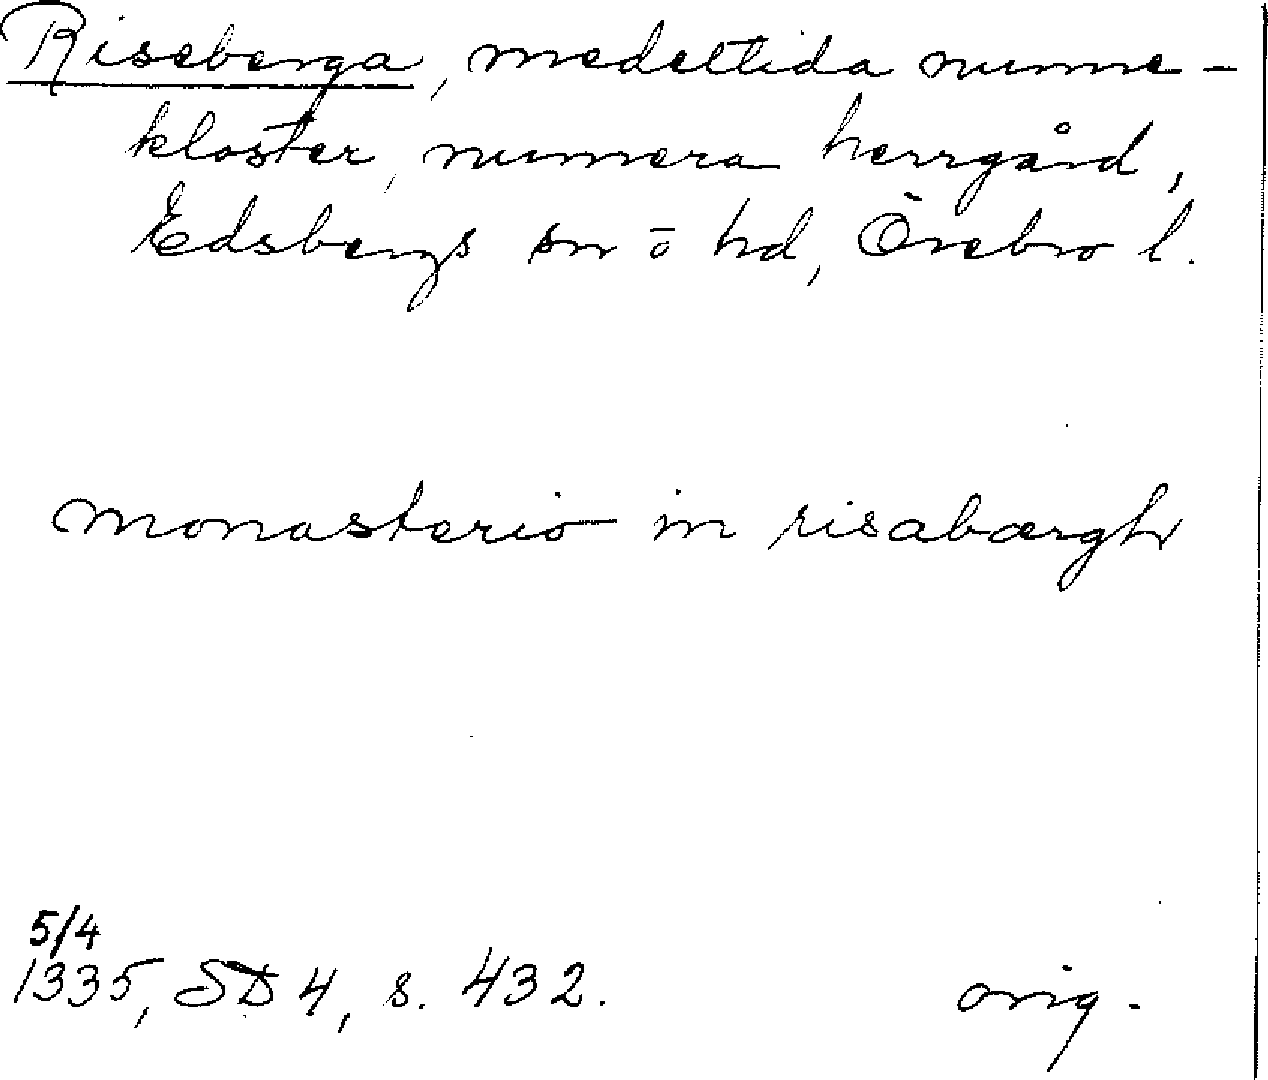 Riseberga, medeltida nunne-
kloster, numera herrgård,
Edsbergs sn o hd, Örebro l.
monasterio in risabærgh
5/4
1335, SD 4, s. 432. orig.